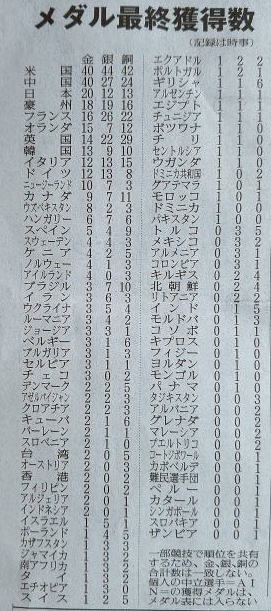 メダル最終獲得数
(記録は時事)
金 銀 銅
米国 40 44 42
中国 40 27 24
日本 20 12 13
豪州 18 19 16
フランス 16 26 22
オランダ 15 7 12
英国 14 22 29
韓国 13 9 10
イタリア 12 13 15
ドイツ 12 13 8
ニュージーランド 10 7 3
カナダ 9 7 11
ウズベキスタン 8 2 3
ハンガリー 6 7 6
スペイン 5 4 9
スウェーデン 4 4 3
ケニア 4 2 5
ノルウェー 4 1 3
アイルランド 4 0 3
ブラジル 3 7 10
イラン 3 6 3
ウクライナ 3 5 4
ルーマニア 3 4 2
ジョージア 3 3 1
ベルギー 3 1 6
ブルガリア 3 1 3
セルビア 3 1 1
チェコ 3 0 2
デンマーク 2 2 5
アゼルバイジャン 2 2 3
クロアチア 2 2 3
キューバ 2 1 6
バーレーン 2 1 1
スロベニア 2 1 0
台湾 2 0 5
オーストリア 2 0 3
香港 2 0 2
フィリピン 2 0 2
アルジェリア 2 0 1
インドネシア 2 0 1
イスラエル 1 5 1
ポーランド 1 4 5
カザフスタン 1 3 3
ジャマイカ 1 3 2
南アフリカ 1 3 2
タイ 1 3 2
エチオピア 1 3 0
スイス 1 2 5
エクアドル 1 2 2
ポルトガル 1 2 1
ギリシャ 1 1 6
アルゼンチン 1 1 1
エジプト 1 1 1
チュニジア 1 1 1
ボツワナ 1 1 0
チリ 1 1 0
セントルシア 1 1 0
ウガンダ 1 1 0
ドミニカ共和国 1 0 2
グアテマラ 1 0 1
モロッコ 1 0 1
ドミニカ 1 0 0
パキスタン 1 0 0
トルコ 0 3 5
メキシコ 0 3 2
アルメニア 0 3 1
コロンビア 0 3 1
キルギス 0 2 4
北朝鮮 0 2 4
リトアニア 0 2 2
インド 0 1 5
モルドバ 0 1 3
コソボ 0 1 1
キプロス 0 1 0
フィジー 0 1 0
ヨルダン 0 1 0
モンゴル 0 1 0
パナマ 0 1 0
タジキスタン 0 0 3
アルバニア 0 0 2
グレナダ 0 0 2
マレーシア 0 0 2
プエルトリコ 0 0 2
コートジボワール 0 0 1
カボベルデ 0 0 1
難民選手団 0 0 1
ペルー 0 0 1
カタール 0 0 1
シンガポール 0 0 1
スロバキア 0 0 1
ザンビア 0 0 1
一部競技で順位を共有
するため、金、銀、銅の
合計数は一致しない。
個人の中立選手=AI
N=の獲得メダルは、
メダル表には入らない